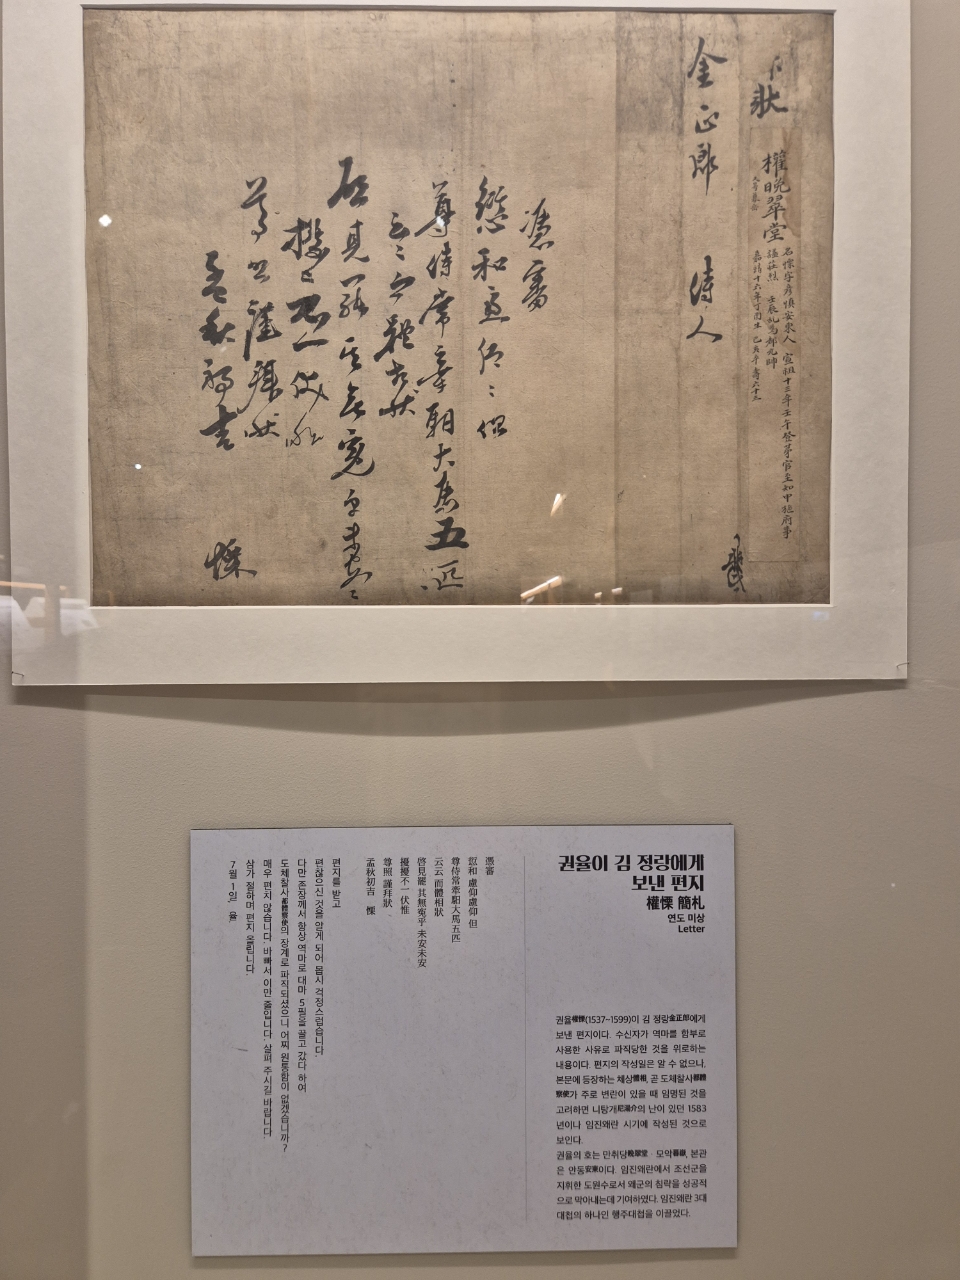 狀
金正郎 侍人
權晩翠堂
名慄字彦愼安東人 宣祖十三年壬午登第官至知中樞府事
謚莊烈 壬辰乱爲都元帥
嘉靖十六年丁酉生 己亥卒壽六十三
憑審
愆和慮仰仰但
尊侍常牽馹大馬五匹
云云而體相狀
啓見罷其無寃乎未安
擾擾不一伏惟
尊照謹拜狀
孟秋初吉 慄
권율이 김 정랑에게
보낸 편지
權慄 簡札
연도 미상
Letter
권율權慄(1537~1599)이 김 정랑金正郎에게
보낸 편지이다. 수신자가 역마를 함부로
사용한 사유로 파직당한 것을 위로하는
내용이다. 편지의 작성일은 알 수 없으나,
본문에 등장하는 체상體相, 곧 도체찰사都體
察使가 주로 변란이 있을 때 임명된 것을
고려하면 니탕개尼湯介의 난이 있던 1583
년이나 임진왜란 시기에 작성된 것으로
보인다.
권율의 호는 만취당晩翠堂·모악暮嶽, 본관
은 안동安東이다. 임진왜란에서 조선군을
지휘한 도원수로서 왜군의 침략을 성공적
으로 막아내는데 기여하였다. 임진왜란 3대
대첩의 하나인 행주대첩을 이끌었다.
憑審
愆和 慮仰慮仰 但
尊侍常牽馹大馬五匹
云云 而體相狀
啓見罷 其無寃乎 未安未安
擾擾不一 伏惟
尊照 謹拜狀
孟秋初吉 慄
편지를 받고
편찮으신 것을 알게 되어 몹시 걱정스럽습니다.
다만 존장께서 항상 역마로 대마 5필을 끌고 갔다 하여
도체찰사都體察使의 장계로 파직되셨으니 어찌 원통함이 없겠습니까?
매우 편치 않습니다. 바빠서 이만 줄입니다. 살펴 주시길 바랍니다.
삼가 절하며 편지 올립니다.
7월 1일, 율.